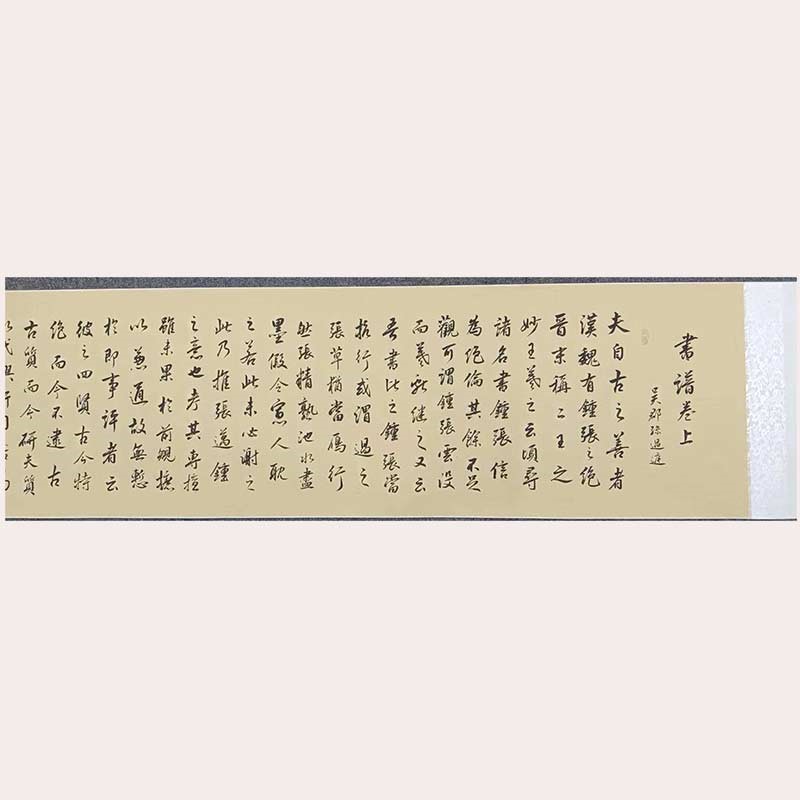 書譜卷上
吳郡孫過庭
夫自古之善者
漢魏有鍾張之絕
晉末稱二王之
妙王羲之云頃尋
諸名書鍾張信
為絕倫其餘不足
觀可謂鍾張雲沒
而羲獻繼之又云
吾書比之鍾張當
抗行或謂過之
張草猶當鴈行
然張精熟池水盡
墨假令寡人耽
之若此未必謝之
此乃推張邁鍾
之意也考其專擅
雖未果於前規摭
以兼通故無慙
於即事評者云
彼之四賢古今特
絕而今不逮古
古質而今研夫質